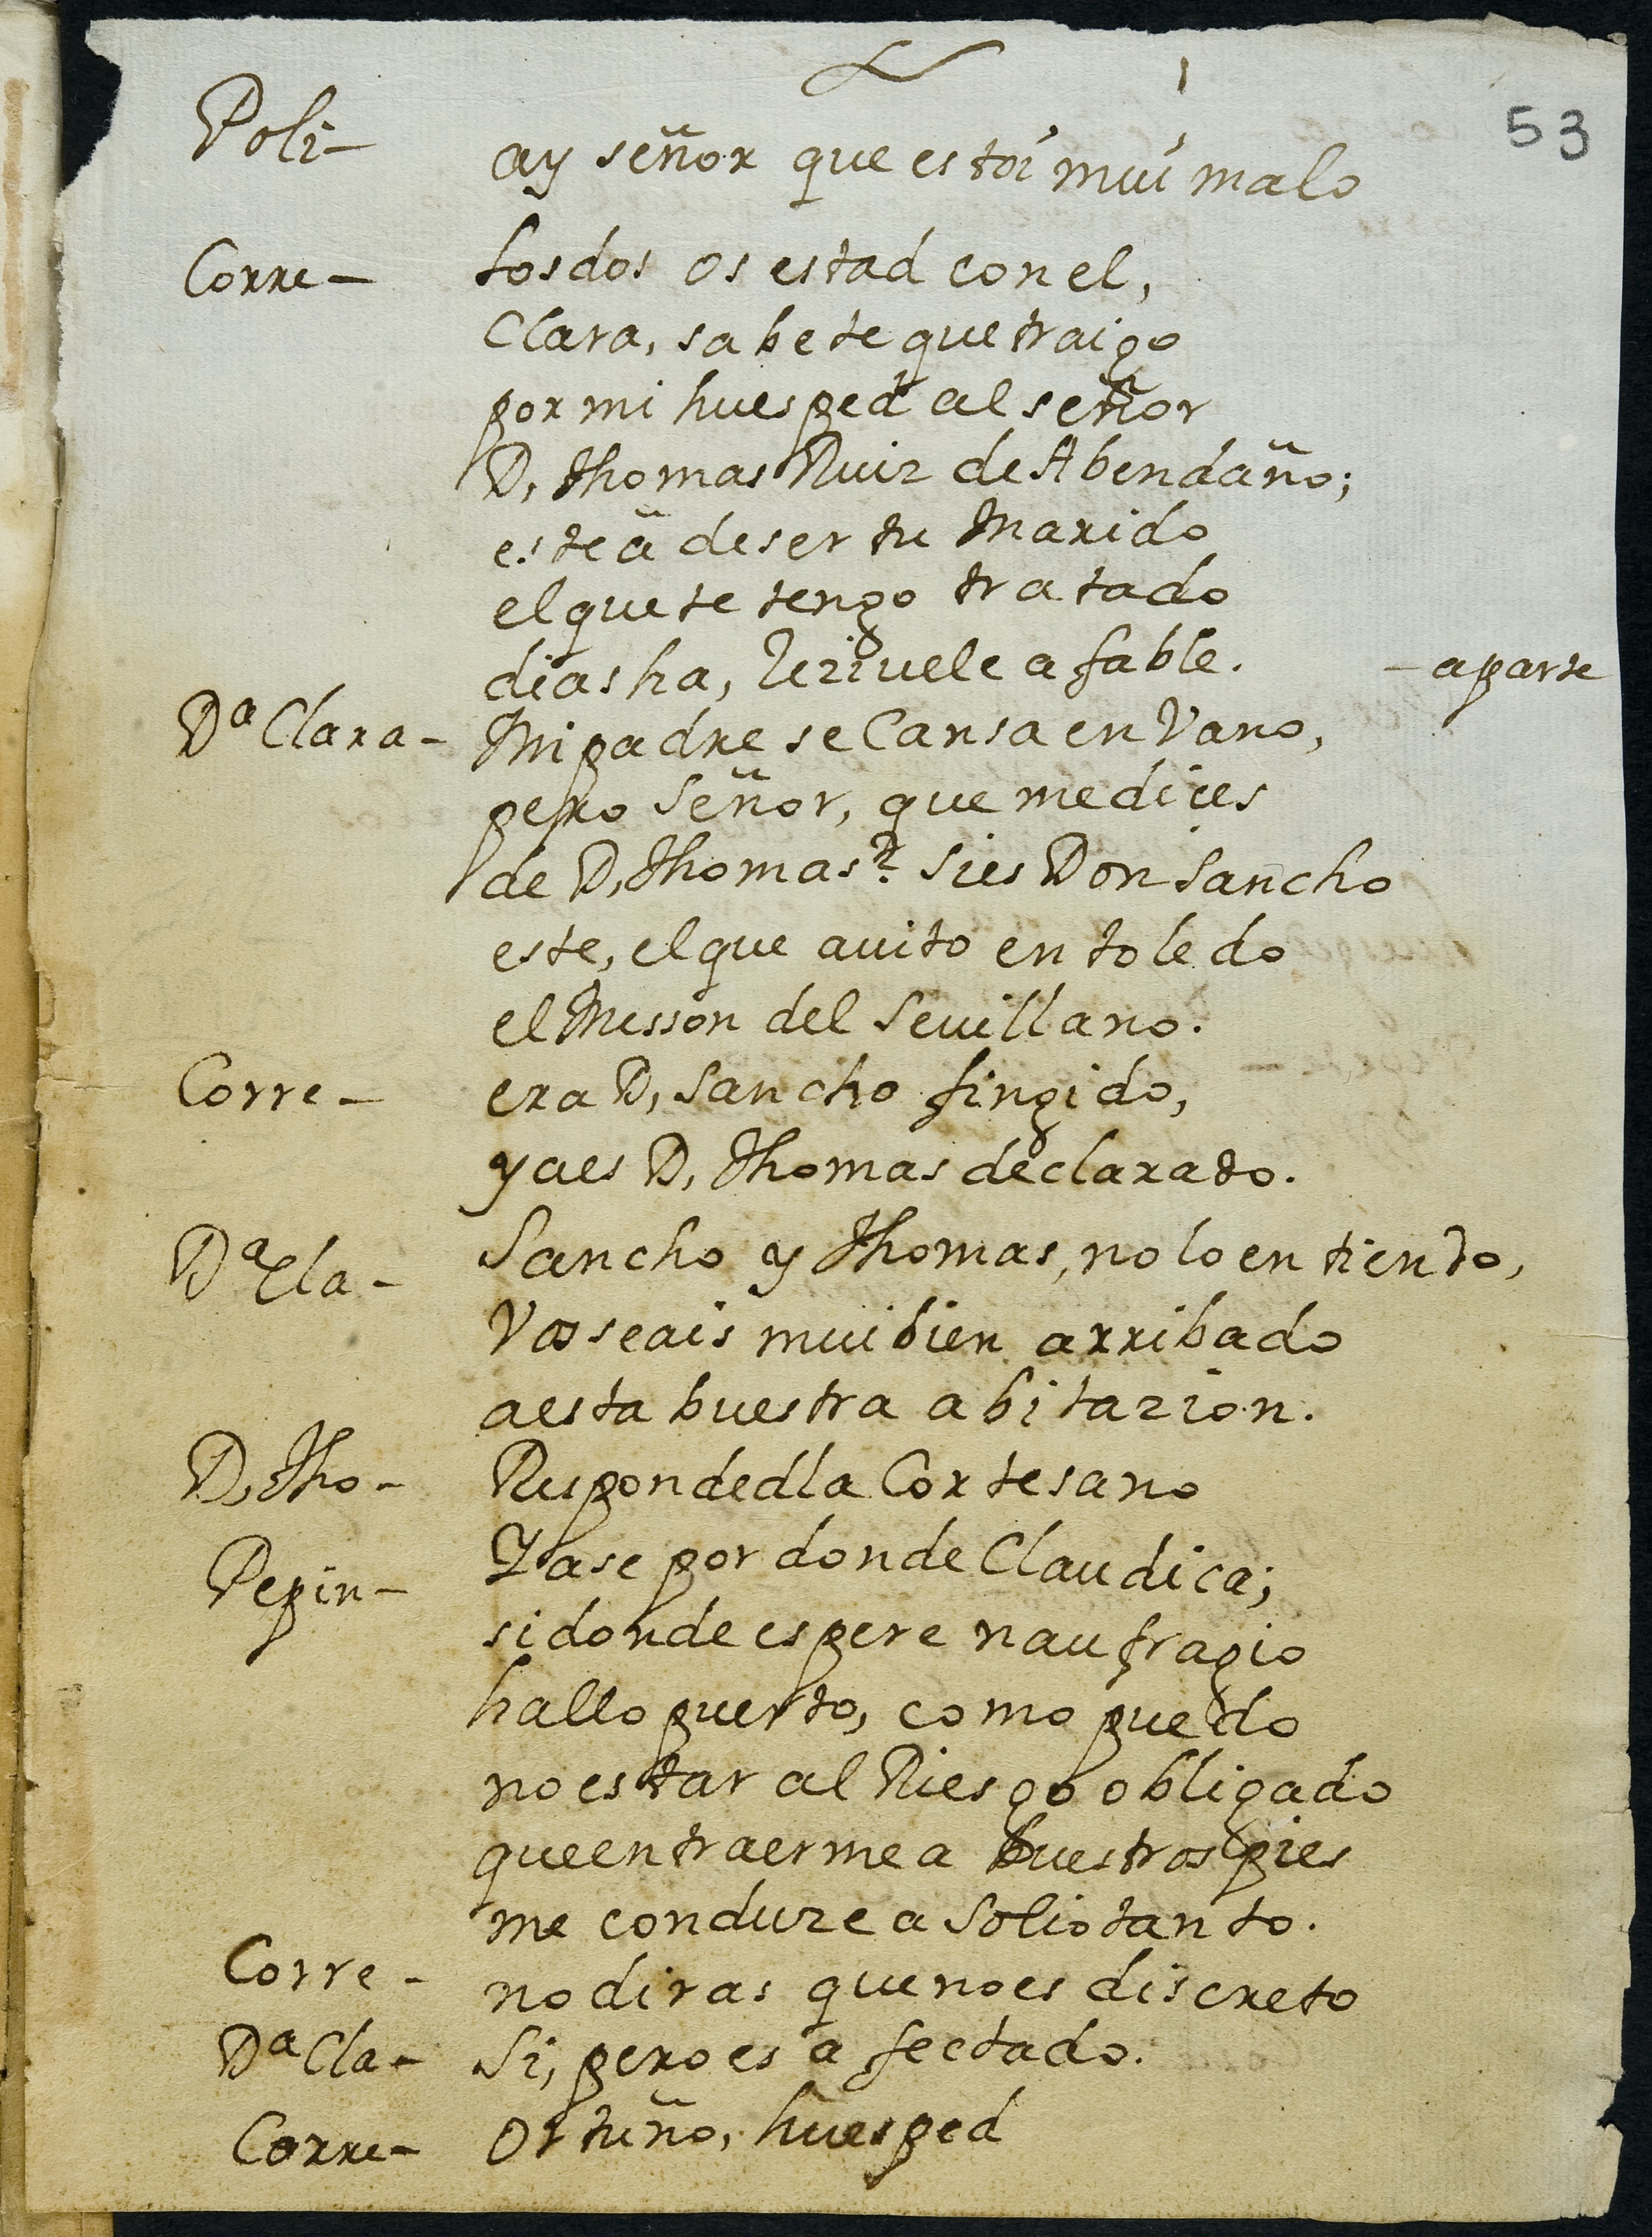 53
Poli- ay señor que estoi mui malo
Corre- los dos os estad con el,
Clara, sabete que traigo
por mi huesped al señor
D, Thomas Ruiz de Abendaño;
este ä de ser tu Marido
el que te tengo tratado
dias ha, Rezivele afable. - aparte
Dª Clara- Mi padre se Cansa en Vano,
pero Señor, que me dizes
de D, Thomas? Si es Don Sancho
este, el que auito en toledo
el Messon del Seuillano.
Corre- era D, Sancho fingido,
ya es D, Thomas declarado.
Dª Cla- Sancho y Thomas, no lo entiendo,
Vos seais mui bien arribado
a esta buestra abitazion.
D, Tho- Respondedla Cortesano
Pepin- Yase por donde Claudica;
si donde espere naufragio
hallo puerto, como puedo
no estar al Riesgo obligado
que en traerme a buestros pies
me conduze a Solio tanto.
Corre- no diras que no es discreto
Dª Cla- Si, pero es afectado.
Corre- Ortuño, huesped